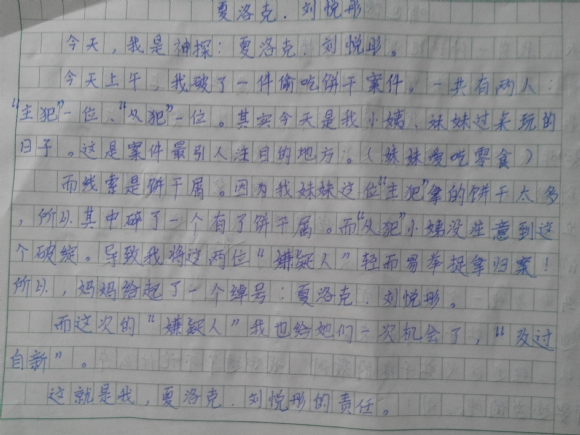 夏洛克.刘悦彤
今天，我是神探：夏洛克.刘悦彤。
今天上午，我破了一件偷吃饼干案件。一共有两人：
“主犯”一位、“从犯”一位。其实今天是我小姨、妹妹过来玩的
日子。这是案件最引人注目的地方。（妹妹爱吃零食）
而线索是饼干屑。因为我妹妹这位“主犯”拿的饼干太多
，所以其中碎了一个有了饼干屑。而“从犯”小姨没注意到这
个破绽。导致我将这两位“嫌疑人”轻而易举捉拿归案！
所以，妈妈给起了一个绰号：夏洛克.刘悦彤。
而这次的“嫌疑人”我也给她们一次机会了，“改过
自新”。
这就是我，夏洛克.刘悦彤的责任。